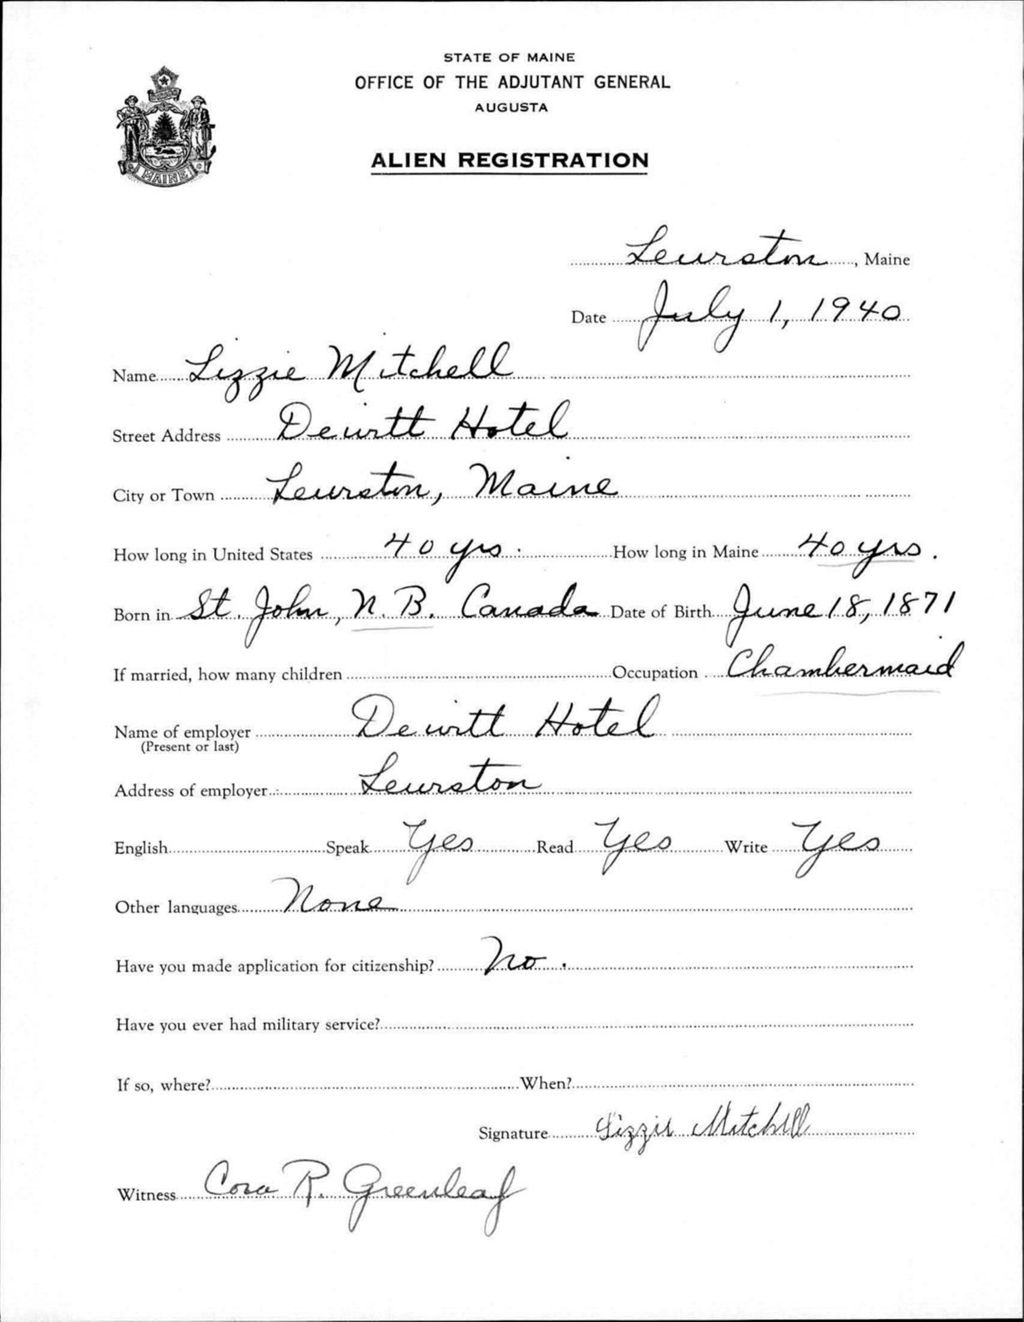 STATE OF MAINE
OFFICE OF THE ADJUTANT GENERAL
AUGUSTA
ALIEN REGISTRATION
MAINE
Lewiston, Maine
Date July 1, 1940
Name Lizzie Mitchell
Street Address Dewitt Hotel
City or Town Lewiston, Maine
How long in United States 40 yrs. How long in Maine 40 yrs.
Born in St. John, N. B. Canada Date of Birth June 18, 1871
If married, how many children Occupation Chambermaid
Name of employer Dewitt Hotel
(Present or last)
Address of employer Lewiston
English Speak Yes Read Yes Write Yes
Other languages None
Have you made application for citizenship? No.
Have you ever had military service?
If so, where? When?
Signature Lizzie Mitchell
Witness Cora R. Greenleaf